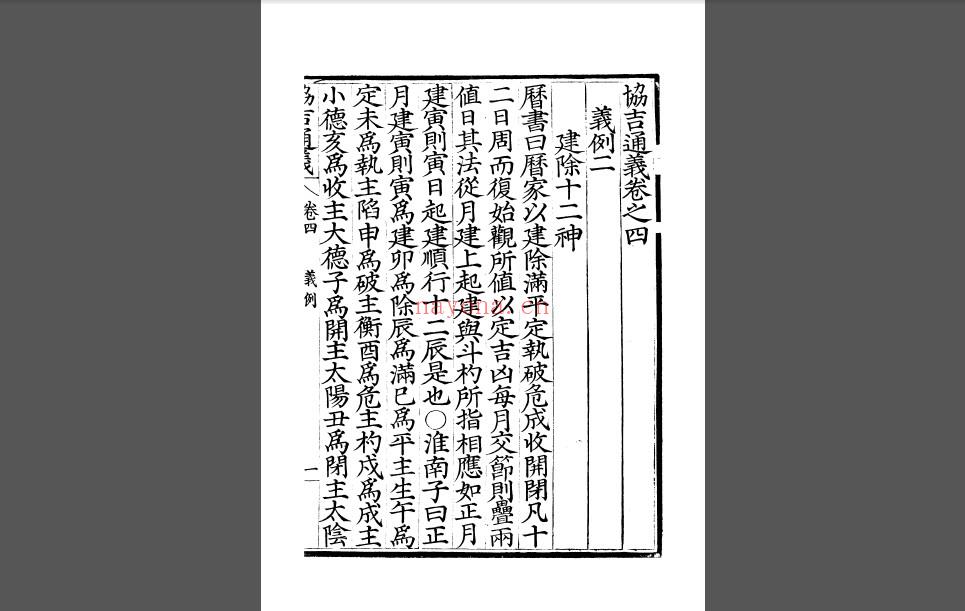 協吉通義卷之四
義例二
建除十二神
曆書曰曆家以建除滿平定執破危成收開閉凡十
二日周而復始觀所值以定吉凶每月交節則疊兩
值日其法從月建上起建與斗杓所指相應如正月
建寅則寅日起建順行十二辰是也〇淮南子曰正
月建寅則寅爲建卯爲除辰爲滿巳爲平主生午爲
定未爲執主陷申爲破主衡酉爲危主杓戍爲成主
小德亥爲收主大德子爲開主太陽丑爲閉主太陰
協吉通義 卷四 義例 一
nayona.cn